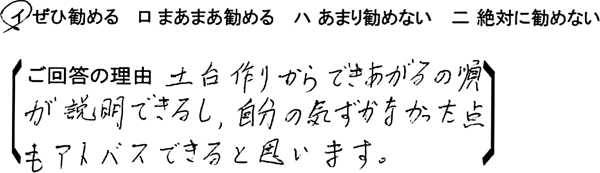 イ ぜひ勧める ロ まあまあ勧める ハ あまり勧めない ニ 絶対に勧めない
ご回答の理由 土台作りからできあがるの順
が説明できるし、自分の気ずかなかった点
もアトバスできると思います。